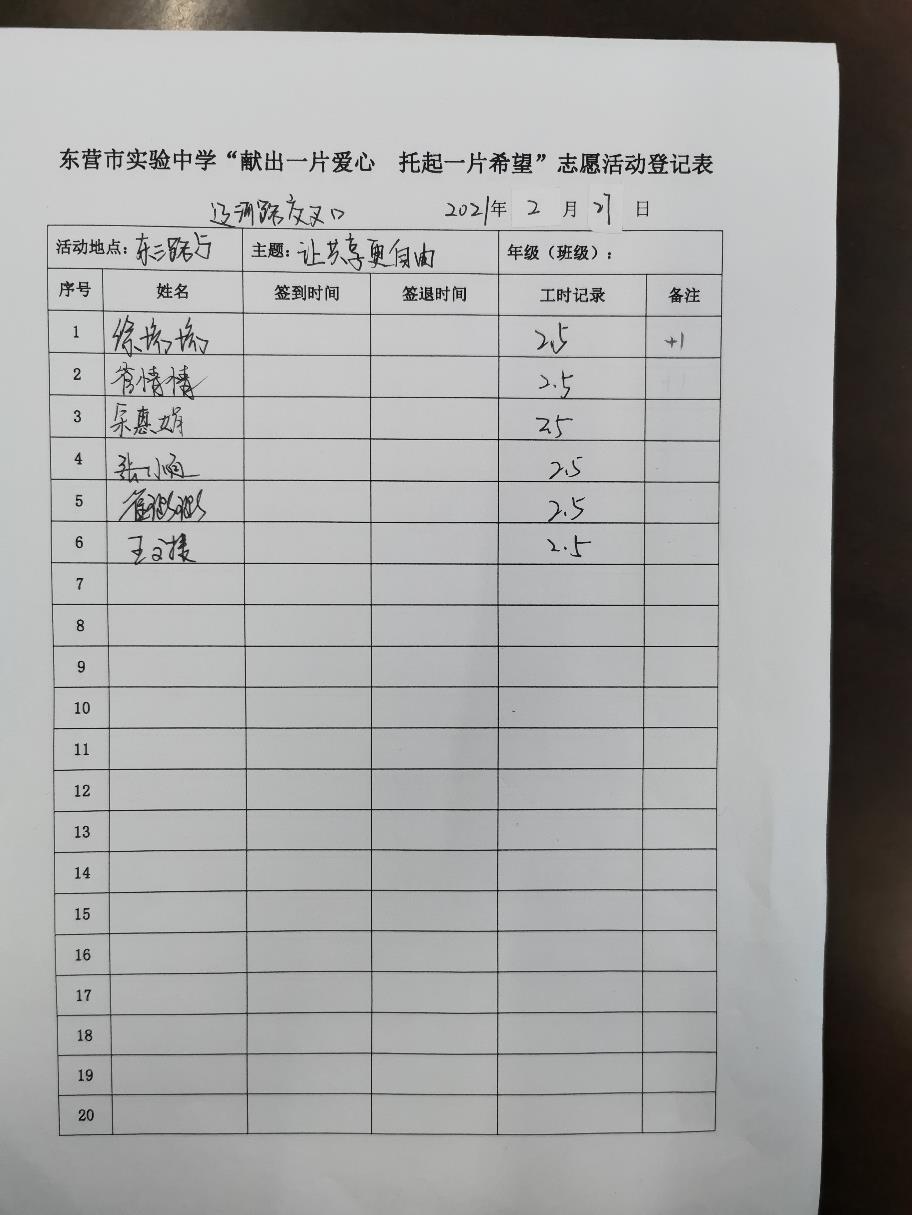 东营市实验中学“献出一片爱心 托起一片希望”志愿活动登记表
路交叉口 2021年 2 月 27 日
活动地点：东三路与 主题：让共享更自由 年级（班级）：
序号 姓名 签到时间 签退时间 工时记录 备注
1 徐 2.5 +1
2 管情情 2.5
3 宋惠娟 2.5
4 张小雨 2.5
5 2.5
6 王文 2.5
7
8
9
10
11
12
13
14
15
16
17
18
19
20